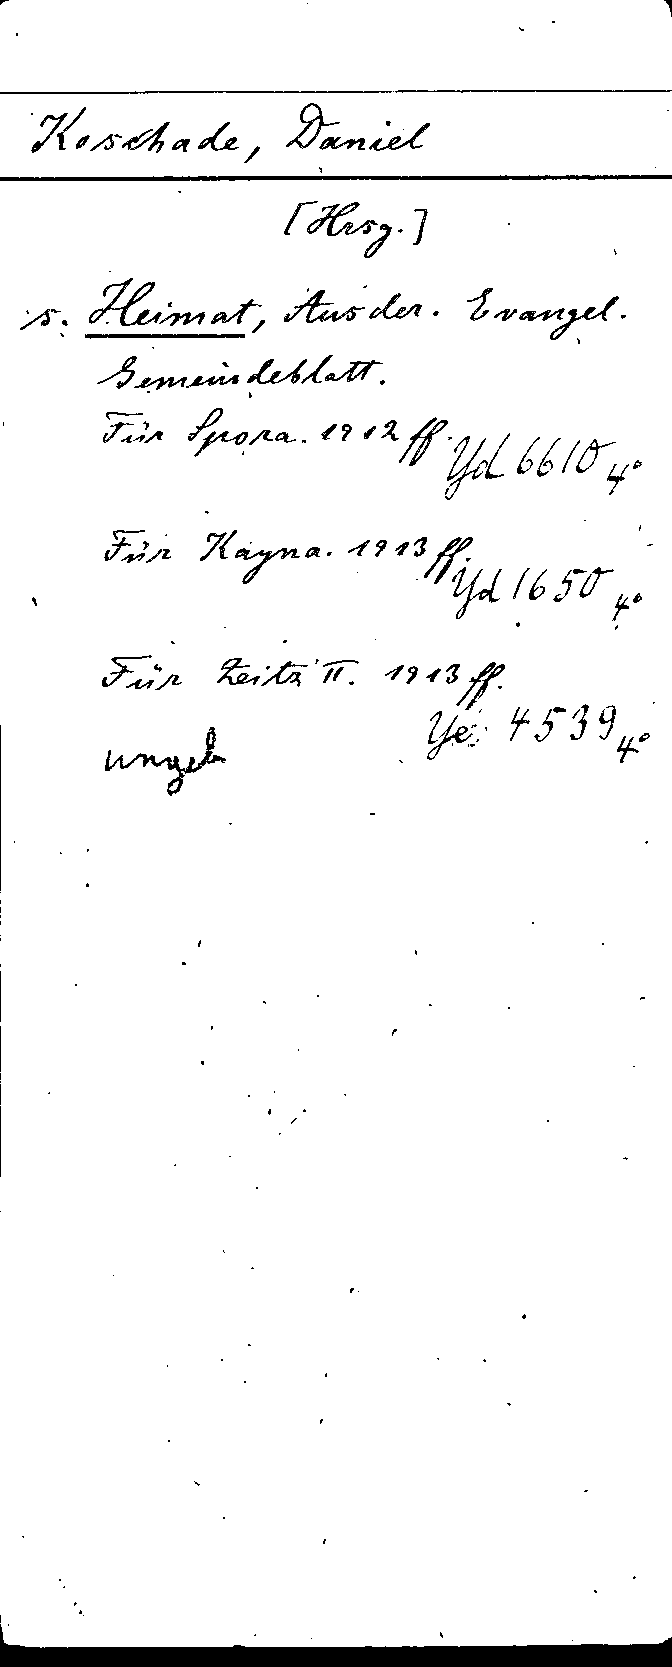 Koschade, Daniel
[Hrsg.]
s. Heimat, Aus der. Evangel.
Gemeindeblatt.
Für Spora. 1912 ff.
Yd 6610 4°
Für Kayna. 1913 ff.
Yd 1650 4°
Für Zeitz II. 1913 ff.
Ye 4539 4°
ungeb